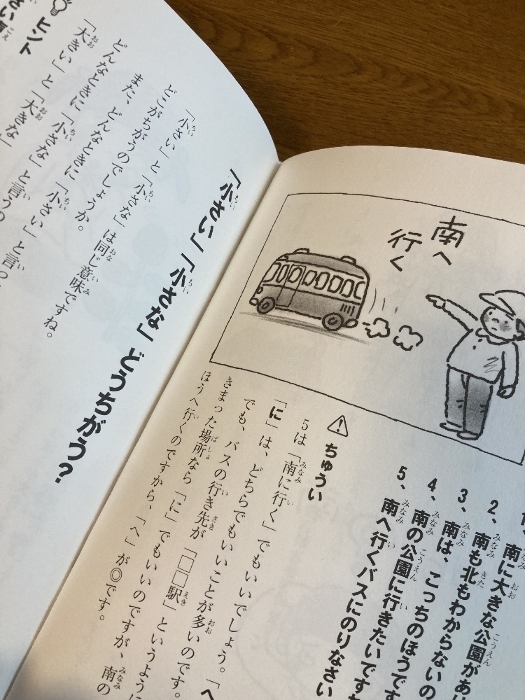 2、南に大きな公園があ
3、南も北もわからないの
4、南は、こっちのほうです
5、南の公園に行きたいです
南へ行くバスにのりなさい
南へ
行く
ちゅうい
5は「南に行く」でもいいでしょう。「へ
「に」は、どちらでもいいことが多いのです。
でも、バスの行き先が「□□駅」というように
きまった場所なら「に」でもいいのですが、南の
ほうへ行くのですから、「へ」が◎です。
「小さい」「小さな」どうちがう?
「小さい」と「小さな」は同じ意味ですね。
どこがちがうのでしょうか。
また、どんなときに「小さい」と言っ
どんなときに「小さな」と言うの
「大きい」と「大きな」
ヒント